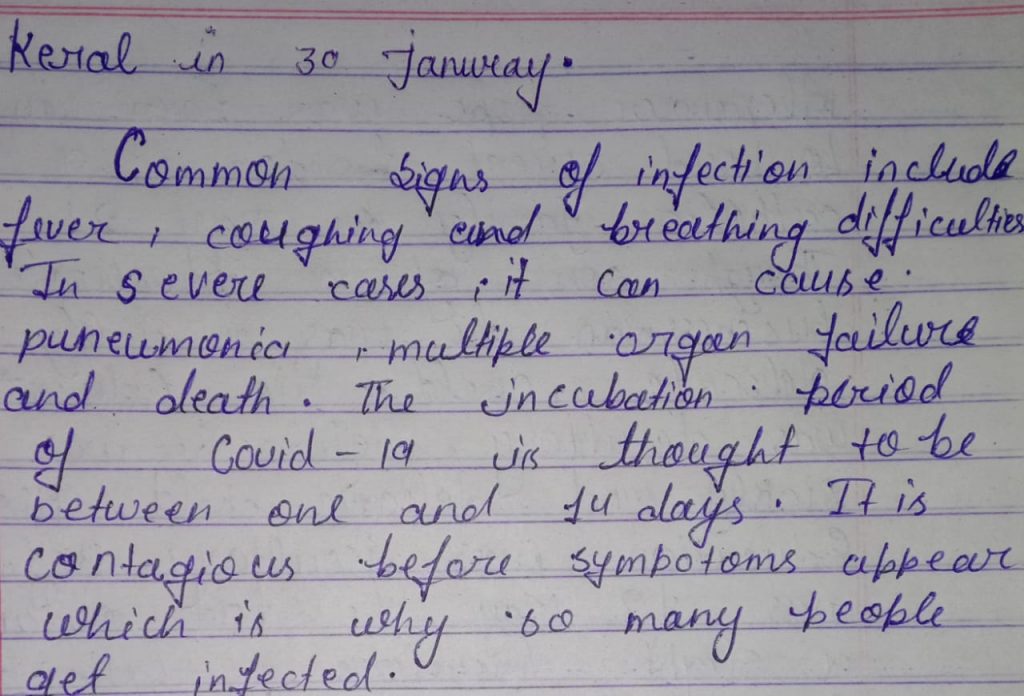 Keral in 30 Januray.
Common signs of infection include
fever, coughing and breathing difficulties
In severe cases, it can cause.
puneumonia, multiple organ failure
and death. The incubation period
of Covid-19 is thought to be
between one and 14 days. It is
contagious before sympotoms appear
which is why so many people
get infected.